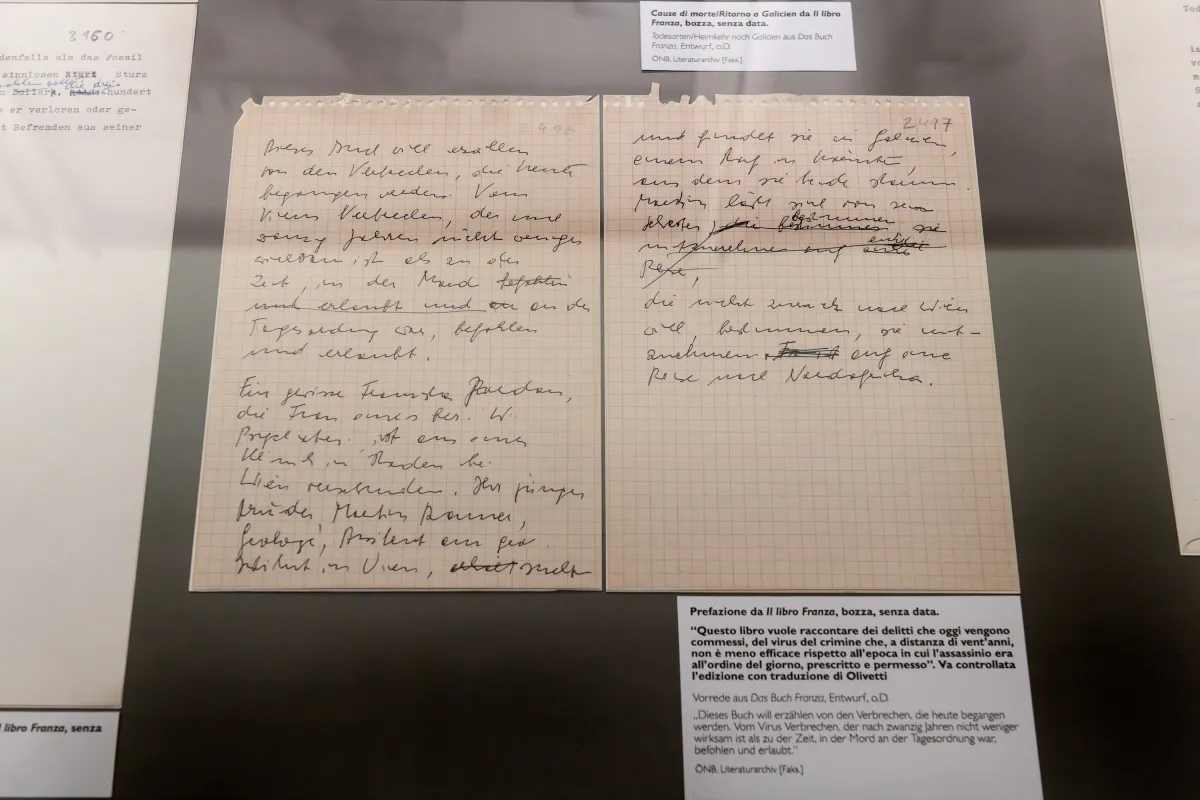 3160
denfalls als das Fossil
sinnlosen Sturz
n Dollars, hundert
e er verloren oder ge-
t Befremden aus seiner
Cause di morte/Ritorno a Galicien da Il libro
Franza, bozza, senza data.
Todesarten/Heimkehr nach Galicien aus Das Buch
Franza, Entwurf, o.D.
ÖNB, Literaturarchiv [Faks.]
Dieses Buch will erzählen
von den Verbrechen, die heute
begangen werden. Vom
Virus Verbrechen, der nach
zwanzig Jahren nicht weniger
wirksam ist als zu der
Zeit, in der Mord befohlen
und erlaubt und an der
Tagesordnung war, befohlen
und erlaubt.
Ein gewisse Franziska Jordan,
die Frau eines Des. W.
ist aus einer
Klinik in Baden bei
Wien verschwunden. Ihr jünger
Bruder Martin Ranner,
Geologe, Assistent am geo.
Institut in Wien, sucht
2497
und findet sie in Galicien,
einem Dorf in Kärnten,
aus dem sie beide stammen.
Martin läßt sich von seiner
Schwester, die bestimmen sie
mitzunehmen auf eine
Reise,
die nicht zurück nach Wien
will, bestimmen, sie mit-
zunehmen auf eine
Reise nach Nordafrika.
Prefazione da Il libro Franza, bozza, senza data.
“Questo libro vuole raccontare dei delitti che oggi vengono
commessi, del virus del crimine che, a distanza di vent'anni,
non è meno efficace rispetto all'epoca in cui l'assassinio era
all'ordine del giorno, prescritto e permesso”. Va controllata
l'edizione con traduzione di Olivetti
Vorrede aus Das Buch Franza, Entwurf, o.D.
„Dieses Buch will erzählen von den Verbrechen, die heute begangen
werden. Vom Virus Verbrechen, der nach zwanzig Jahren nicht weniger
wirksam ist als zu der Zeit, in der Mord an der Tagesordnung war,
befohlen und erlaubt.“
ÖNB, Literaturarchiv [Faks.]
l libro Franza, senza